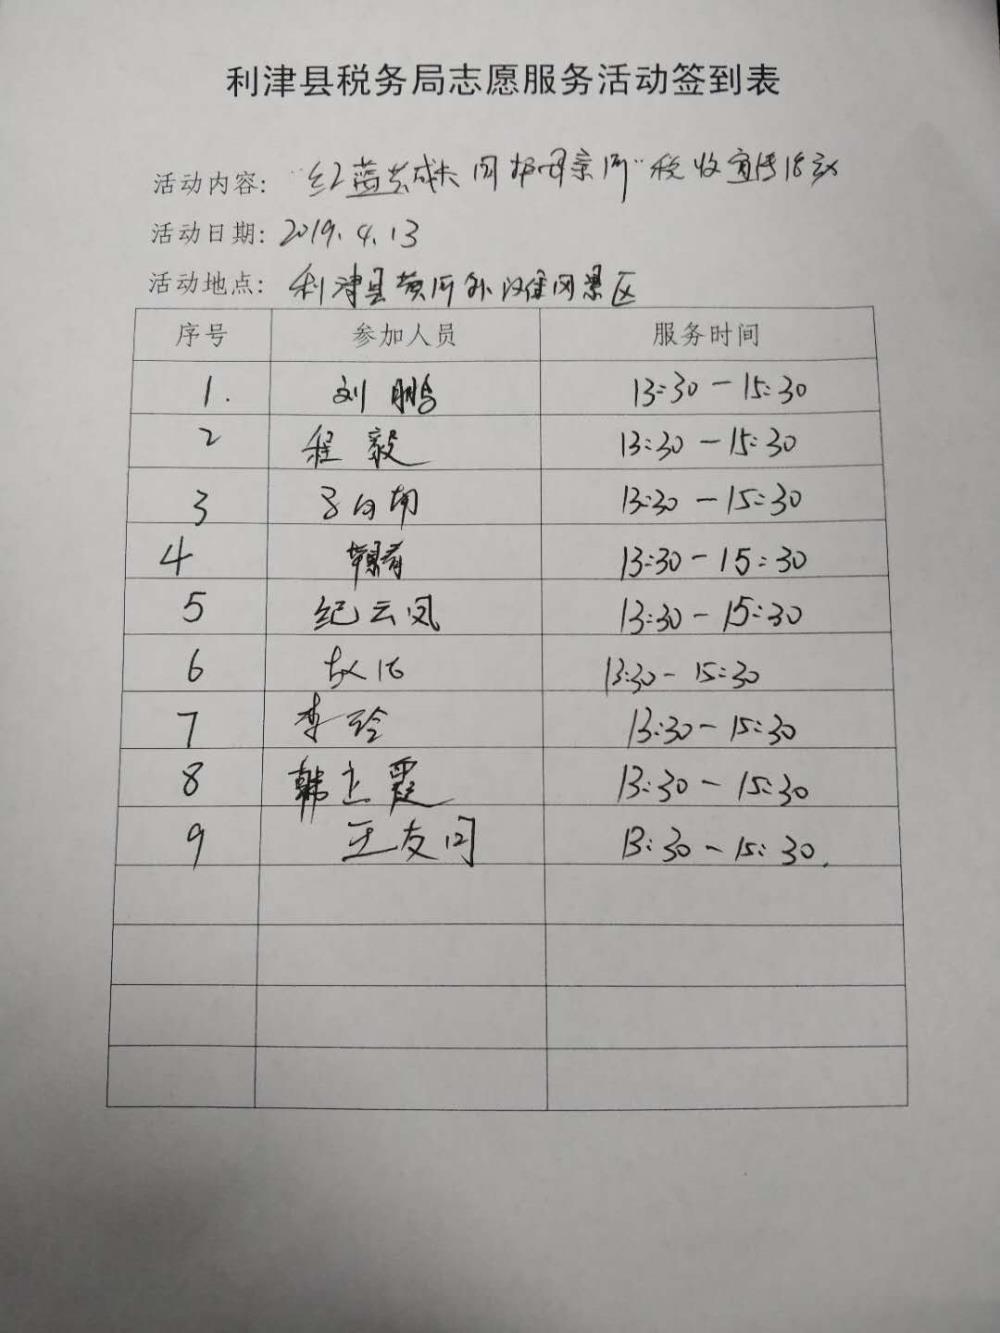 利津县税务局志愿服务活动签到表
活动内容: "红蓝共成长 同护母亲河" 税收宣传活动
活动日期: 2019.4.13
活动地点: 利津县黄河外滩风景区
序号 参加人员 服务时间
1. 刘鹏 13:30-15:30
2 程毅 13:30-15:30
3 13:30-15:30
4 13:30-15:30
5 纪云凤 13:30-15:30
6 13:30-15:30
7 李玲 13:30-15:30
8 韩立霞 13:30-15:30
9 王友同 13:30-15:30.